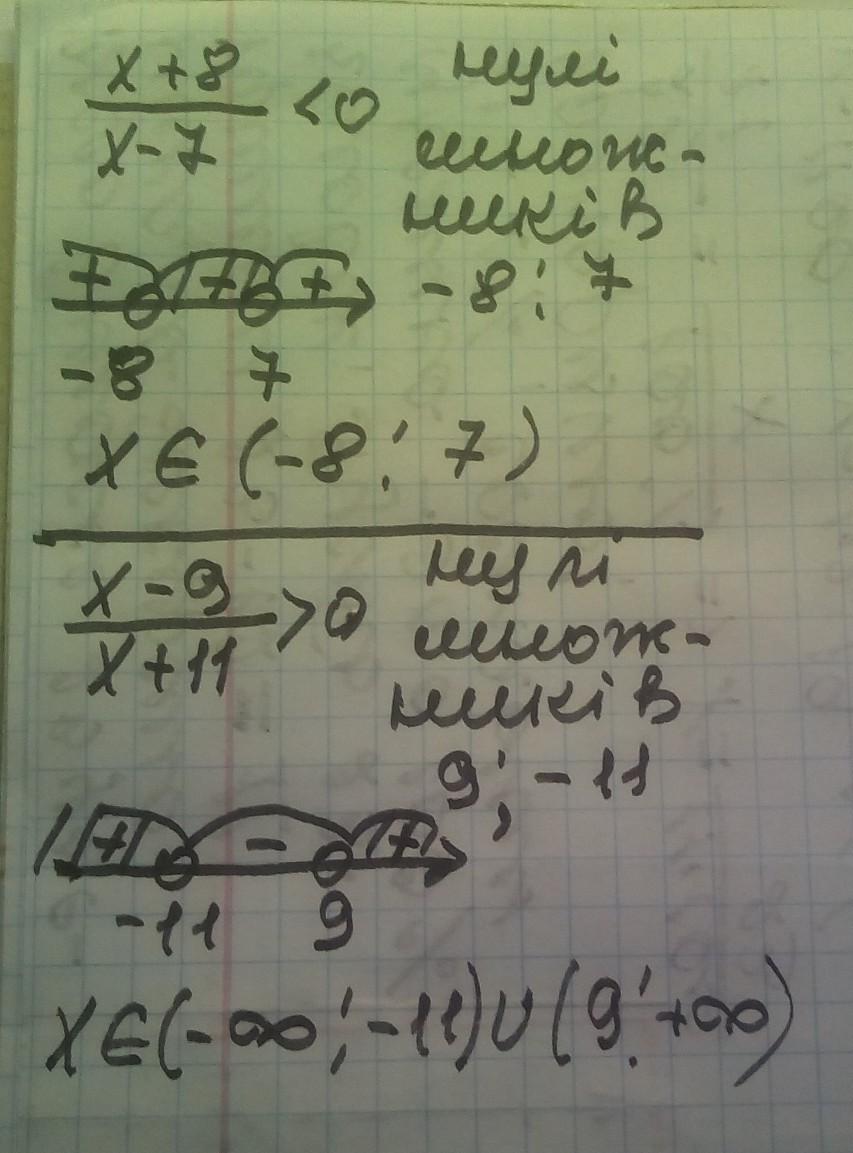 x+8
x-7
<0
нулі
множ-
ників
-8; 7
+ + +
-8 7
x∈(-8; 7)
x-9
x+11
>0
нулі
множ-
ників
9; -11
+ - +
-11 9
x∈(-∞; -11)∪(9; +∞)